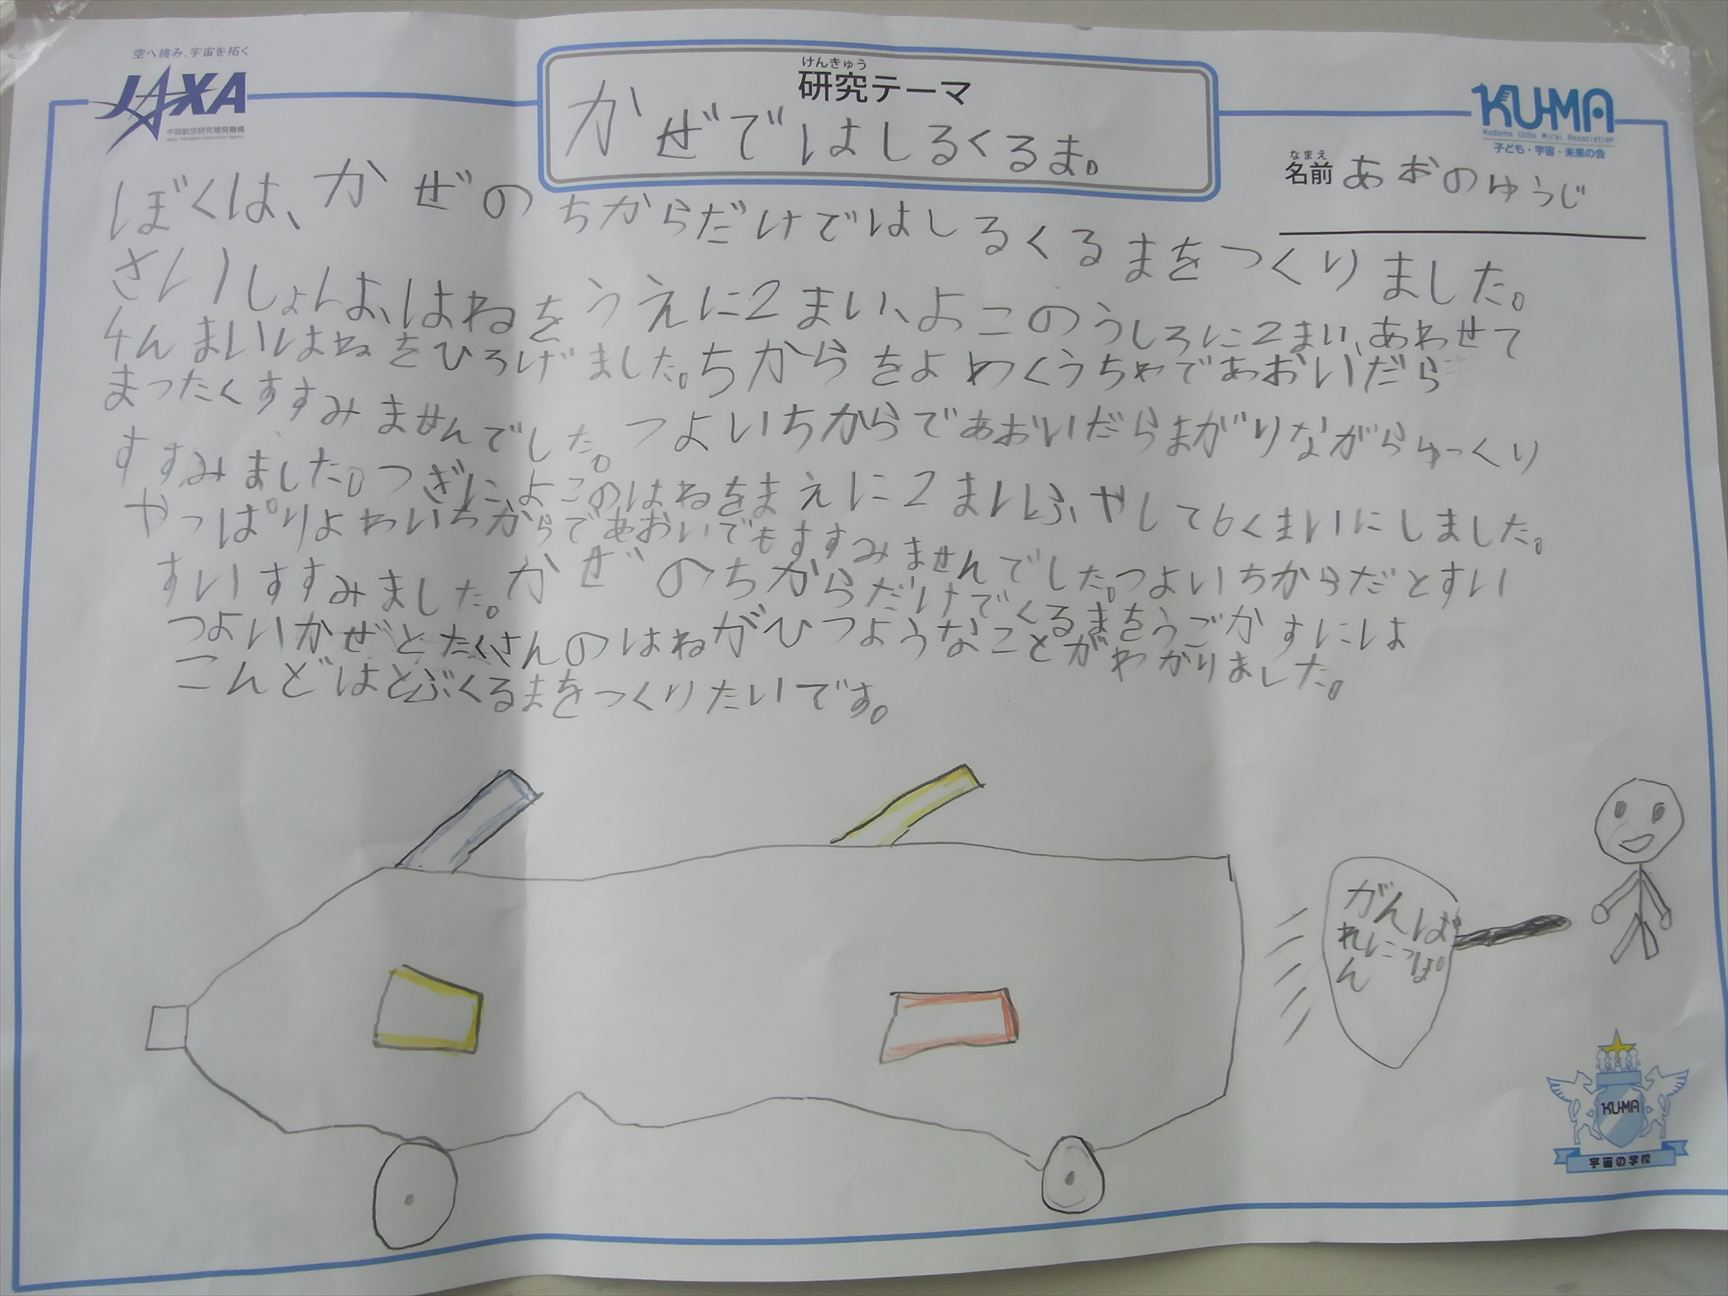 空へ挑み、宇宙を拓く
JAXA
宇宙航空研究開発機構
Japan Aerospace Exploration Agency
けんきゅう
研究テーマ
かぜではしるくるま。
KU-MA
Kodomo Uchu Mirai Association
子ども・宇宙・未来の会
なまえ
名前 あおのゆうじ
ぼくは、かぜのちからだけではしるくるまをつくりました。
さいしょは、はねをうえに2まい、よこのうしろに2まい、あわせて
4んまいはねをひろげました。ちからをよわくうちわであおいだら
まったくすすみませんでした。つよいちからであおいだらまがりながらゆっくり
すすみました。つぎによこのはねをまえに2まいふやして6くまいにしました。
やっぱりよわいちからであおいでもすすみませんでした。つよいちからだとすい
すいすすみました。かぜのちからだけでくるまをうごかすには
つよいかぜとたくさんのはねがひつようなことがわかりました。
こんどはとぶくるまをつくりたいです。
がんば
れにっぽ
ん
KU-MA
宇宙の学校